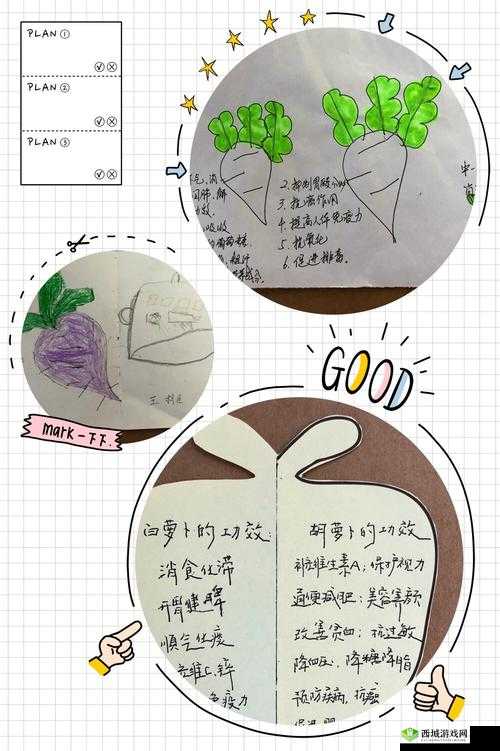 PLAN ①
PLAN ②
PLAN ③
2. 抑制胃酸
3. 抗癌作用
4. 提高人体免疫力
5. 抗氧化
6. 促进排毒。
mark一下下.
GOOD
白萝卜的功效:
消食化滞
开胃健脾
顺气化痰
免疫力
胡萝卜的功效
补维生素A; 保护视力
通便减肥; 美容养颜
改善贫血; 抗过敏
降血压、降糖降脂
预防疾病、抗癌
西域游戏网